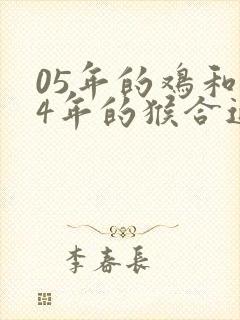 05年的鸡和
4年的猴合适
李春长